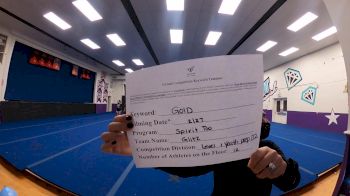 Keyword: Gold
Filming Date: 2/27
Program: Spirit Too
Team Name: Glitz
Competition Division: Level 1 youth prep D2
Number of Athletes on the Floor: 12